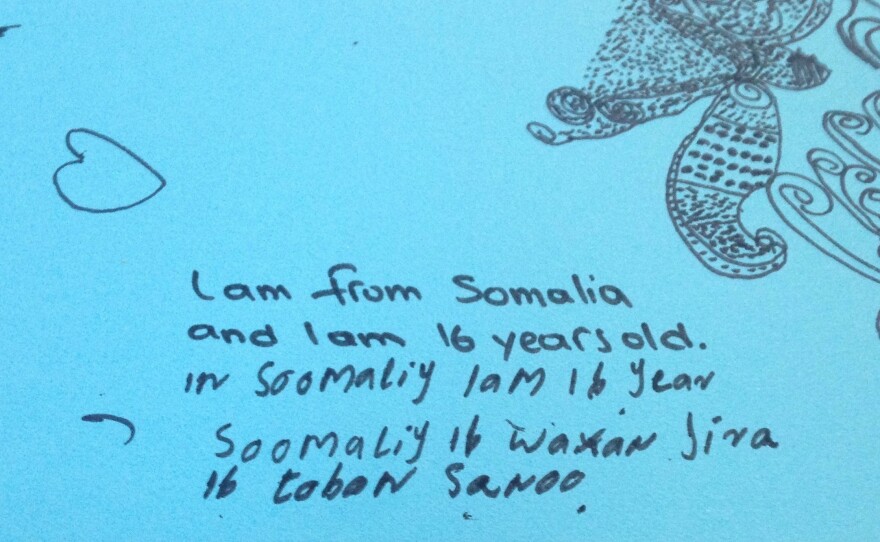 I am from Somalia
and I am 16 years old.
in Soomaliy IaM 16 year
Soomaliy 16 waxan Jira
16 toban Sanoo